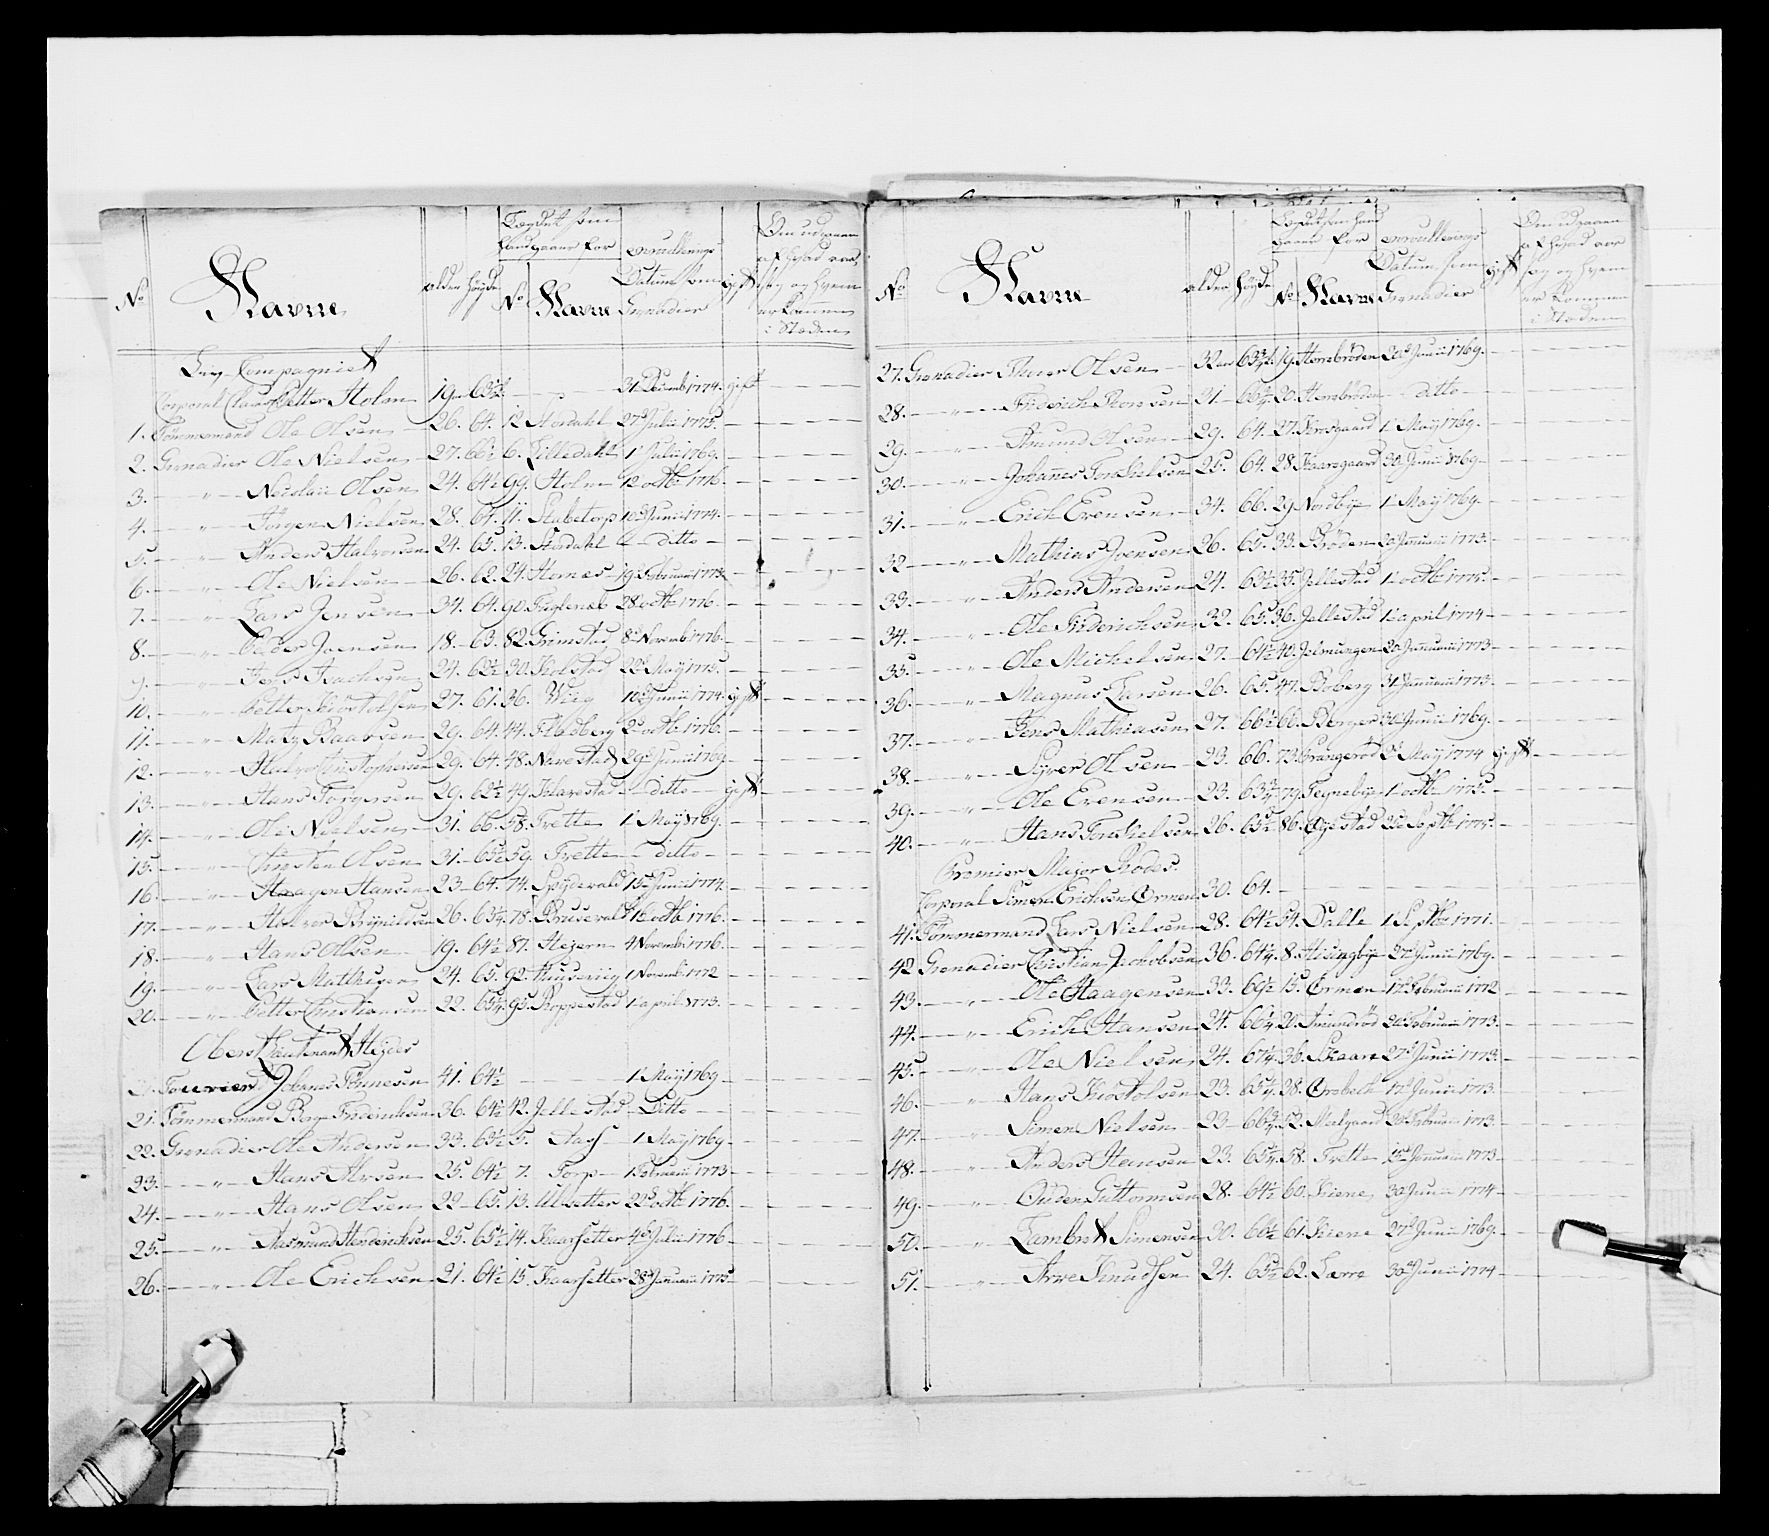 No Navne alder høyde Lægdet som hand gaaer for No Navne enroullerings Datum som Grenadier gift Om udgaaen af hvad aarsag og hvem er kommen i Steden
Liv Compagniet
Corporal Claus Petter Holm 19 63½ 31 Decemb 1774 gift
1. Tømmermand Ole Olsen 26. 64. 12 Stordahl 27de Julii 1775.
2. Grenadier Ole Nielsen 27. 66½ 6. Lilledahl 1 Julii 1769.
3. " Nicolaii Olsen 24. 64½ 99. Holm 12 octb 1776
4. " Jørgen Nielsen 28. 64. 11. Stabetorp 10de Junii 1774.
5. " Anders Halvorsen 24. 65. 13. Stordahl ditto
6. " Ole Nielsen 26. 62. 24. Hornes 19 Februarii 1773.
7. " Lars Jensen 34. 64. 90. Fuglenab 28 octb 1776.
8. " Peder Joensen 18. 63. 82. Grimstad 8 Novemb 1776.
9. " Jens Isachsen 24. 62½ 30. Kolstad 22de Maÿ 1775.
10. " Petter Kiøstolsen 27. 61. 36. Wiig 10de Junii 1774. gift
11. " Matz Baarsen 29. 64. 44. Fladberg 2de octb 1776.
12. " Halvor Christophersen 20. 64. 48. Navestad 29de Junii 1769.
13. " Hans Torgersen 29. 62½ 49. Klavestad ditto gift
14. " Ole Nielsen 31. 66. 58. Trette 1 Maÿ 1769.
15. " Christen Olsen 31. 65½ 59. Trette ditto
16. " Haagen Hansen 23. 64. 74. Spÿdevald 15de Junii 1774.
17. " Halvor Brÿnildsen 26. 63¼ 78. Brusevald 16 octb 1776.
18. " Hans Olsen 19. 64½ 87. Hegern 4 Novemb 1776.
19. " Lars Mathisen 24. 65. 92. Huseriig 1 Novemb 1772
20. " Petter Christiansen 22. 65¼ 95. Roppestad 1 april 1773.
Oberst Lieutenant Heÿdes
Fourier Johannes Tønnesen 41. 64½ 1 Maÿ 1769
21. Tømmermand Boy Friderichsen 36. 64½ 42. Jellestad Ditto
22. Grenadier Ole Andersen 33. 63½ 5. Aas 1 Maÿ 1769
23. " Hans Arvesen 25. 64½ 7. Torp 1 Februarii 1773
24. " Hans Olsen 22. 65. 13. Ulsetter 22 octb 1776.
25. " Aasmund Henderichsen 25. 65½ 14. Kaarsetter 4de Julii 1776
26. " Ole Erichsen 21. 64½ 15. Kaarsetter 28de Januarii 1775
No Navne alder høyde Lægdet som hand gaaer for No Navne enroullerings Datum som Grenadier gift Om udgaaen af hvad aarsag og hvem er kommen i Steden
27. Grenadier Thuer Olsen 32 63¾ 19. Hornebrøden 20de Junii 1769.
28. " Friderich Thorsen 31 66¼ 20. Hornebrøden ditto
29. " Amund Olsen 29. 64. 27. Kirsgaard 1 Maÿ 1769.
30. " Johannes Torkielsen 25. 64. 28. Skaaregaard 30 Junii 1769
31. " Erich Evensen 34. 66. 29 Nordbÿe 1 Maÿ 1769
32 " Mathias Joensen 26. 65. 33. Brøden 20 Januarii 1773.
33. " Anders Andersen 24. 63½ 35. Jellestad 12 octb 1775.
34. " Ole Friderichsen 32. 65. 36. Jellestad 1 april 1774
35. " Ole Michelsen 27. 64½ 40. Jelmungen 20 Januarii 1773
36. " Magnus Larsen 26. 65. 47. Boberg 31 Januarii 1773.
37. " Jens Mathiasen 27. 66½ 66. Berger 30 Junii 1769.
38. " Sÿver Olsen 23. 66. 73. Prangerød 2de Maÿ 1774 gift
39. " Ole Evensen 23. 63¾ 79. Tegnebÿe 1 octb 1775.
40. " Hans Torkielsen 26. 65½ 86. Øgestad 25de Septb 1775.
Premier Major Rodes.
Corporal Simen Erichsen Ormen 30. 64.
41. Tømmermand Lars Nielsen 28. 64½ 54. Dalle 1 Septb 1771.
42 Grenadier Christian Jacobsen 36. 64¼ 8. Hisingbÿe 27de Junii 1769.
43. " Ole Haagensen 33. 66½ 15. Ormen 17de Februarii 1772
44. " Erich Hansen 24. 66¼ 20. Amundrød 20de Februarii 1773.
45. " Ole Nielsen 24. 67¼ 36. Skaare 27de Junii 1773.
46. " Hans Kiøstolsen 23. 65¼ 38. Ørebech 17de Junii 1773.
47. " Simen Nielsen 23 66¾ 52. Melgaard 20de Februarii 1773.
48. " Anders Hansen 23. 65¼ 58. Trette 15de Januarii 1773
49. " Ouden Guttormsen 28. 64½ 60. Kiene 30 Junii 1774
50. " Lambret Simensen 30. 66½ 61. Kiene 27de Junii 1769.
51. " Arve Knudsen 24. 65½ 62. Lerre 30de Junii 1774